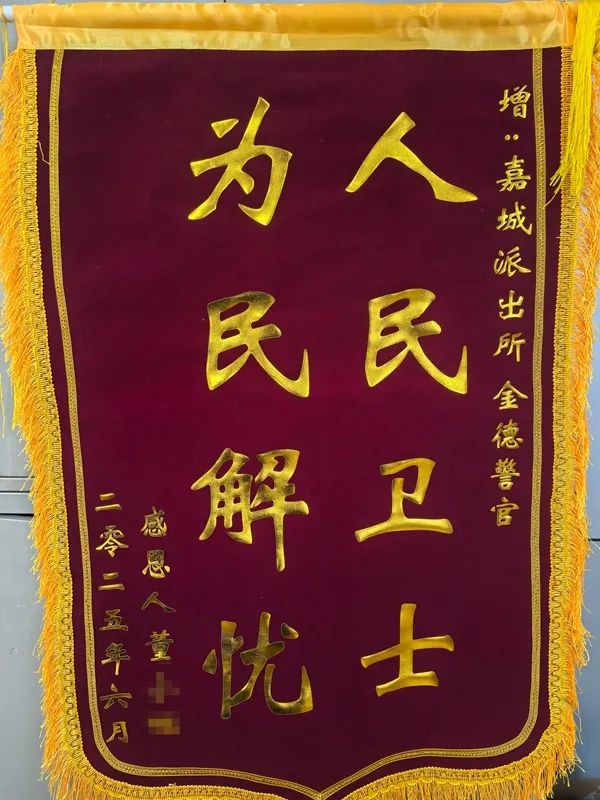 增：嘉城派出所 金德警官
人民卫士
为民解忧
感恩人董
二零二五年六月